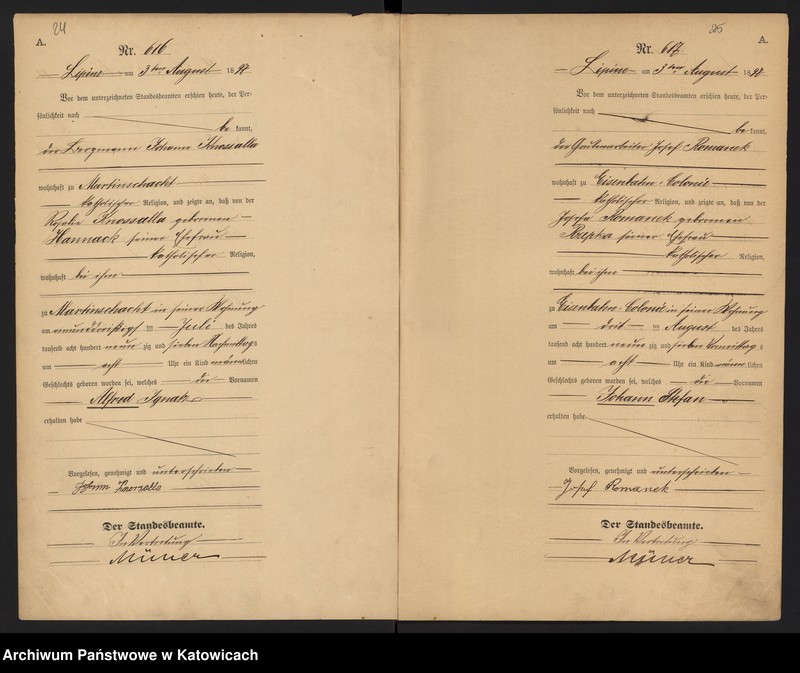 24
A.
Nr. 616
Lipine am 3ten August 1897
Vor dem unterzeichneten Standesbeamten erschien heute, der Per-
sönlichkeit nach
be kannt,
der Bergmann Johann Knossalla
wohnhaft zu Martinschacht
katholischer Religion, und zeigte an, daß von der
Rosalie Knossalla geborenen
Hannack seiner Ehefrau
katholischer Religion,
wohnhaft bei ihm
zu Martinschacht in seiner Wohnung
am einunddreißigsten Juli des Jahres
tausend acht hundert neun zig und sieben Nachmittags
um acht Uhr ein Kind männlichen
Geschlechts geboren worden sei, welches die Vornamen
Alfred Ignatz
erhalten habe
Vorgelesen, genehmigt und unterschrieben
Johann
Der Standesbeamte.
In Vertretung
25
A.
Nr. 617
Lipine am 3ten August 1897
Vor dem unterzeichneten Standesbeamten erschien heute, der Per-
sönlichkeit nach
be kannt,
der Grubenarbeiter Josef Romanek
wohnhaft zu Eisenbahn-Colonie
katholischer Religion, und zeigte an, daß von der
Josefa Romanek geborenen
Rzepka seiner Ehefrau
katholischer Religion,
wohnhaft bei ihm
zu Eisenbahn-Colonie in seiner Wohnung
am drei ten August des Jahres
tausend acht hundert neun zig und sieben Vormittags
um acht Uhr ein Kind männlichen
Geschlechts geboren worden sei, welches die Vornamen
Johann Stefan
erhalten habe.
Vorgelesen, genehmigt und unterschrieben
Josef Romanek
Der Standesbeamte.
In Vertretung
Archiwum Państwowe w Katowicach